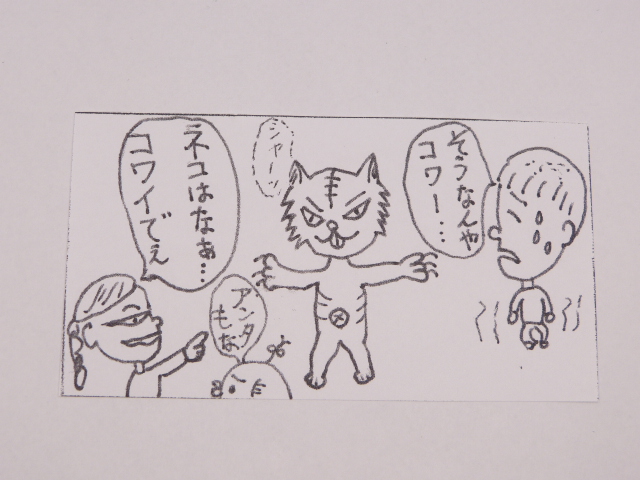 そうなんや
コワー…
シャーッ
ネコはなぁ…
コワイでぇ
アンタ
もな